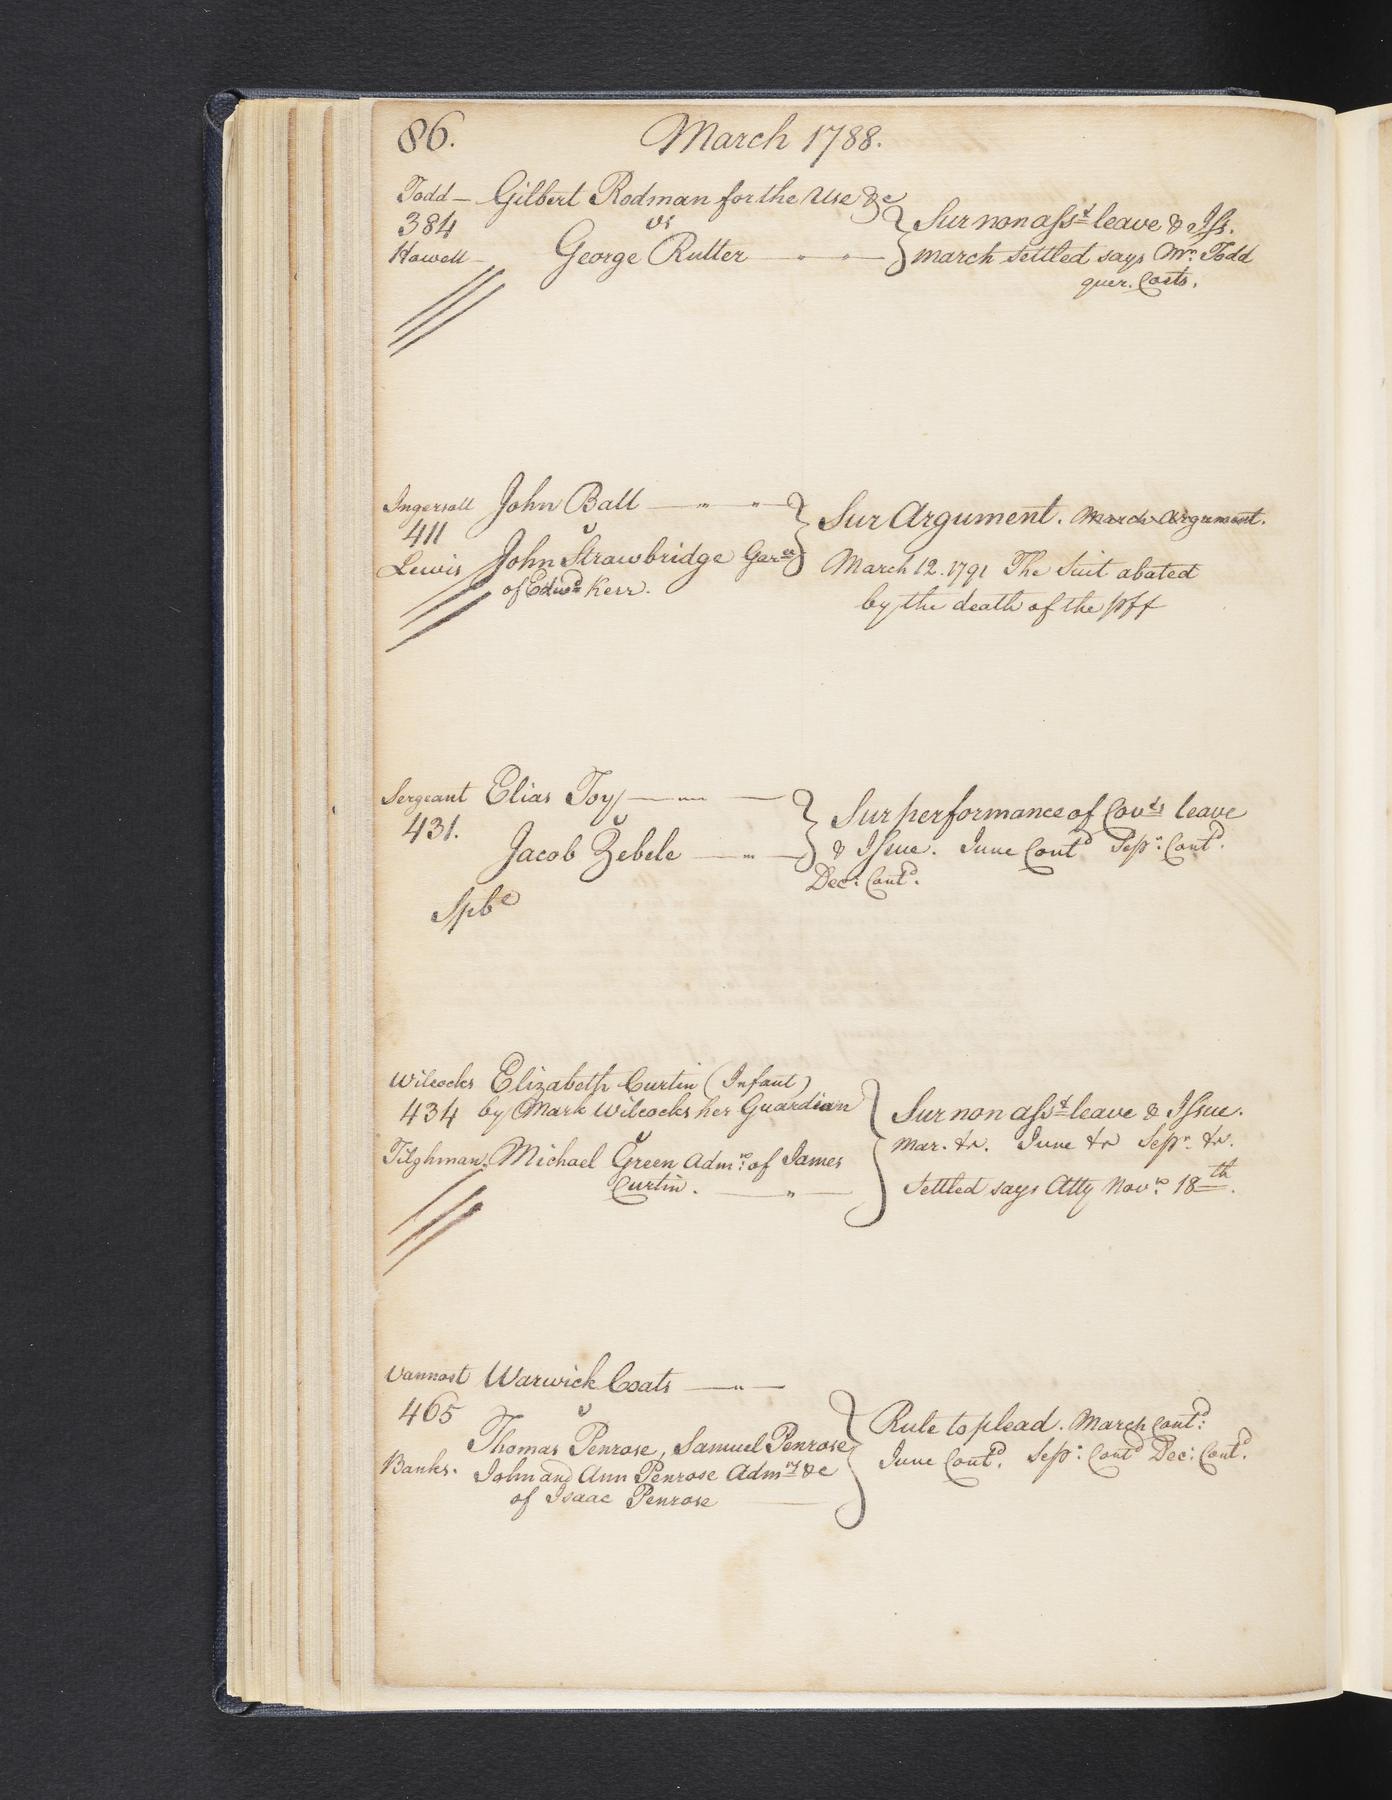 86. March 1788.
Todd — Gilbert Rodman for the Use &c
384 vs
Howell — George Rutter
Sur non ass.t leave & Iss.
March settled says Mr. Todd
quer. Costs.
Ingersoll John Ball
411 v
Lewis John Strawbridge Gar.ee
of Edw.d Kerr.
Sur Argument. March Argument.
March 12. 1791 The Suit abated
by the death of the pff
Sergeant Elias Toy
431. v
Jacob Zebele
Sur performance of Cov.ts leave
& Issue. June Cont.d Sep.r: Cont.d
Dec: Cont.d
Spb.a
Wilcocks Elizabeth Curtin (Infant)
434 by Mark Wilcocks her Guardian
v
Tilghman. Michael Green Adm.r: of James
Curtin.
Sur non ass.t leave & Issue.
Mar. tr. June tr Sep.r tr.
Settled says Atty Nov.r 18th.
Vannost Warwick Coats
465 v
Thomas Penrose, Samuel Penrose
Banks. John and Ann Penrose Adm.rs &c
of Isaac Penrose
Rule to plead. March Cont.d:
June Cont.d. Sep.r: Cont.d Dec: Cont.d.